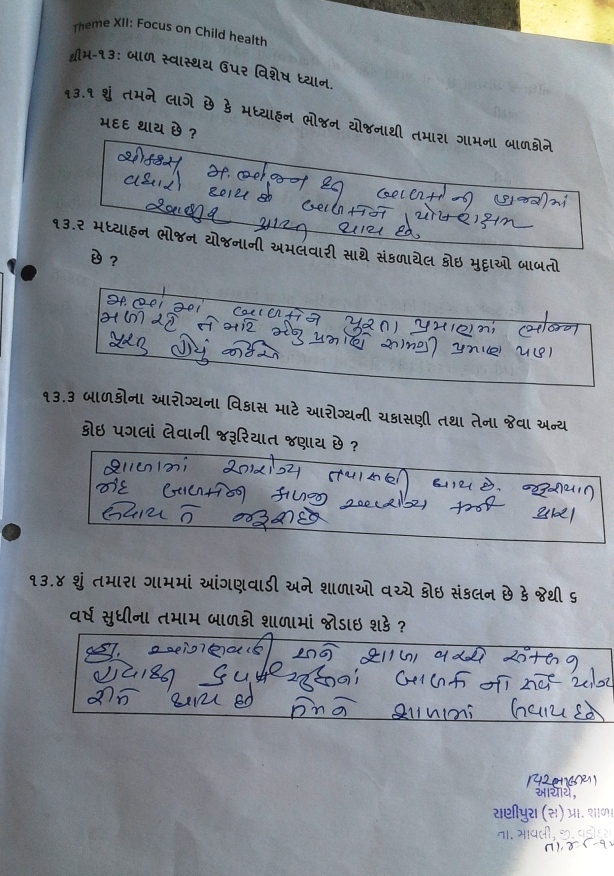 Theme XII: Focus on Child health
થીમ-૧૩: બાળ સ્વાસ્થય ઉપર વિશેષ ધ્યાન.
૧૩.૧ શું તમને લાગે છે કે મધ્યાહન ભોજન યોજનાથી તમારા ગામના બાળકોને
મદદ થાય છે ?
ચોક્કસ મ.ભોજન થી બાળકોની હાજરીમાં
વધારો થાય છે બાળકોને પોષણક્ષમ
આહાર પ્રાપ્ત થાય છે.
૧૩.૨ મધ્યાહન ભોજન યોજનાની અમલવારી સાથે સંકળાયેલ કોઇ મુદ્દાઓ બાબતો
છે ?
મ.ભો માં બાળકોને પુરતા પ્રમાણમાં ભોજન
મળી રહે તે માટે મેનુ પ્રમાણે સામગ્રી પ્રમાણ પણ
પુરતુ હોવું જોઈએ
૧૩.૩ બાળકોના આરોગ્યના વિકાસ માટે આરોગ્યની ચકાસણી તથા તેના જેવા અન્ય
કોઇ પગલાં લેવાની જરૂરિયાત જણાય છે ?
શાળામાં આરોગ્ય તપાસણી થાય છે. જરૂરીયાત
મંદ બાળકોની કાળજી આરોગ્ય
લેવાય તે જરૂરી છે
૧૩.૪ શું તમારા ગામમાં આંગણવાડી અને શાળાઓ વચ્ચે કોઇ સંકલન છે કે જેથી ૬
વર્ષ સુધીના તમામ બાળકો શાળામાં જોડાઇ શકે ?
હા. આંગણવાડી અને શાળા વચ્ચે સંકલન
હોવાથી ૬ વર્ષ સુધીનાં બાળકો નો સર્વે યોગ્ય
રીતે થાય છે તેમને શાળામાં લેવાય છે
આચાર્ય,
રાણીપુરા (સ) પ્રા. શાળા
તા. સાવલી, જી. વડોદરા